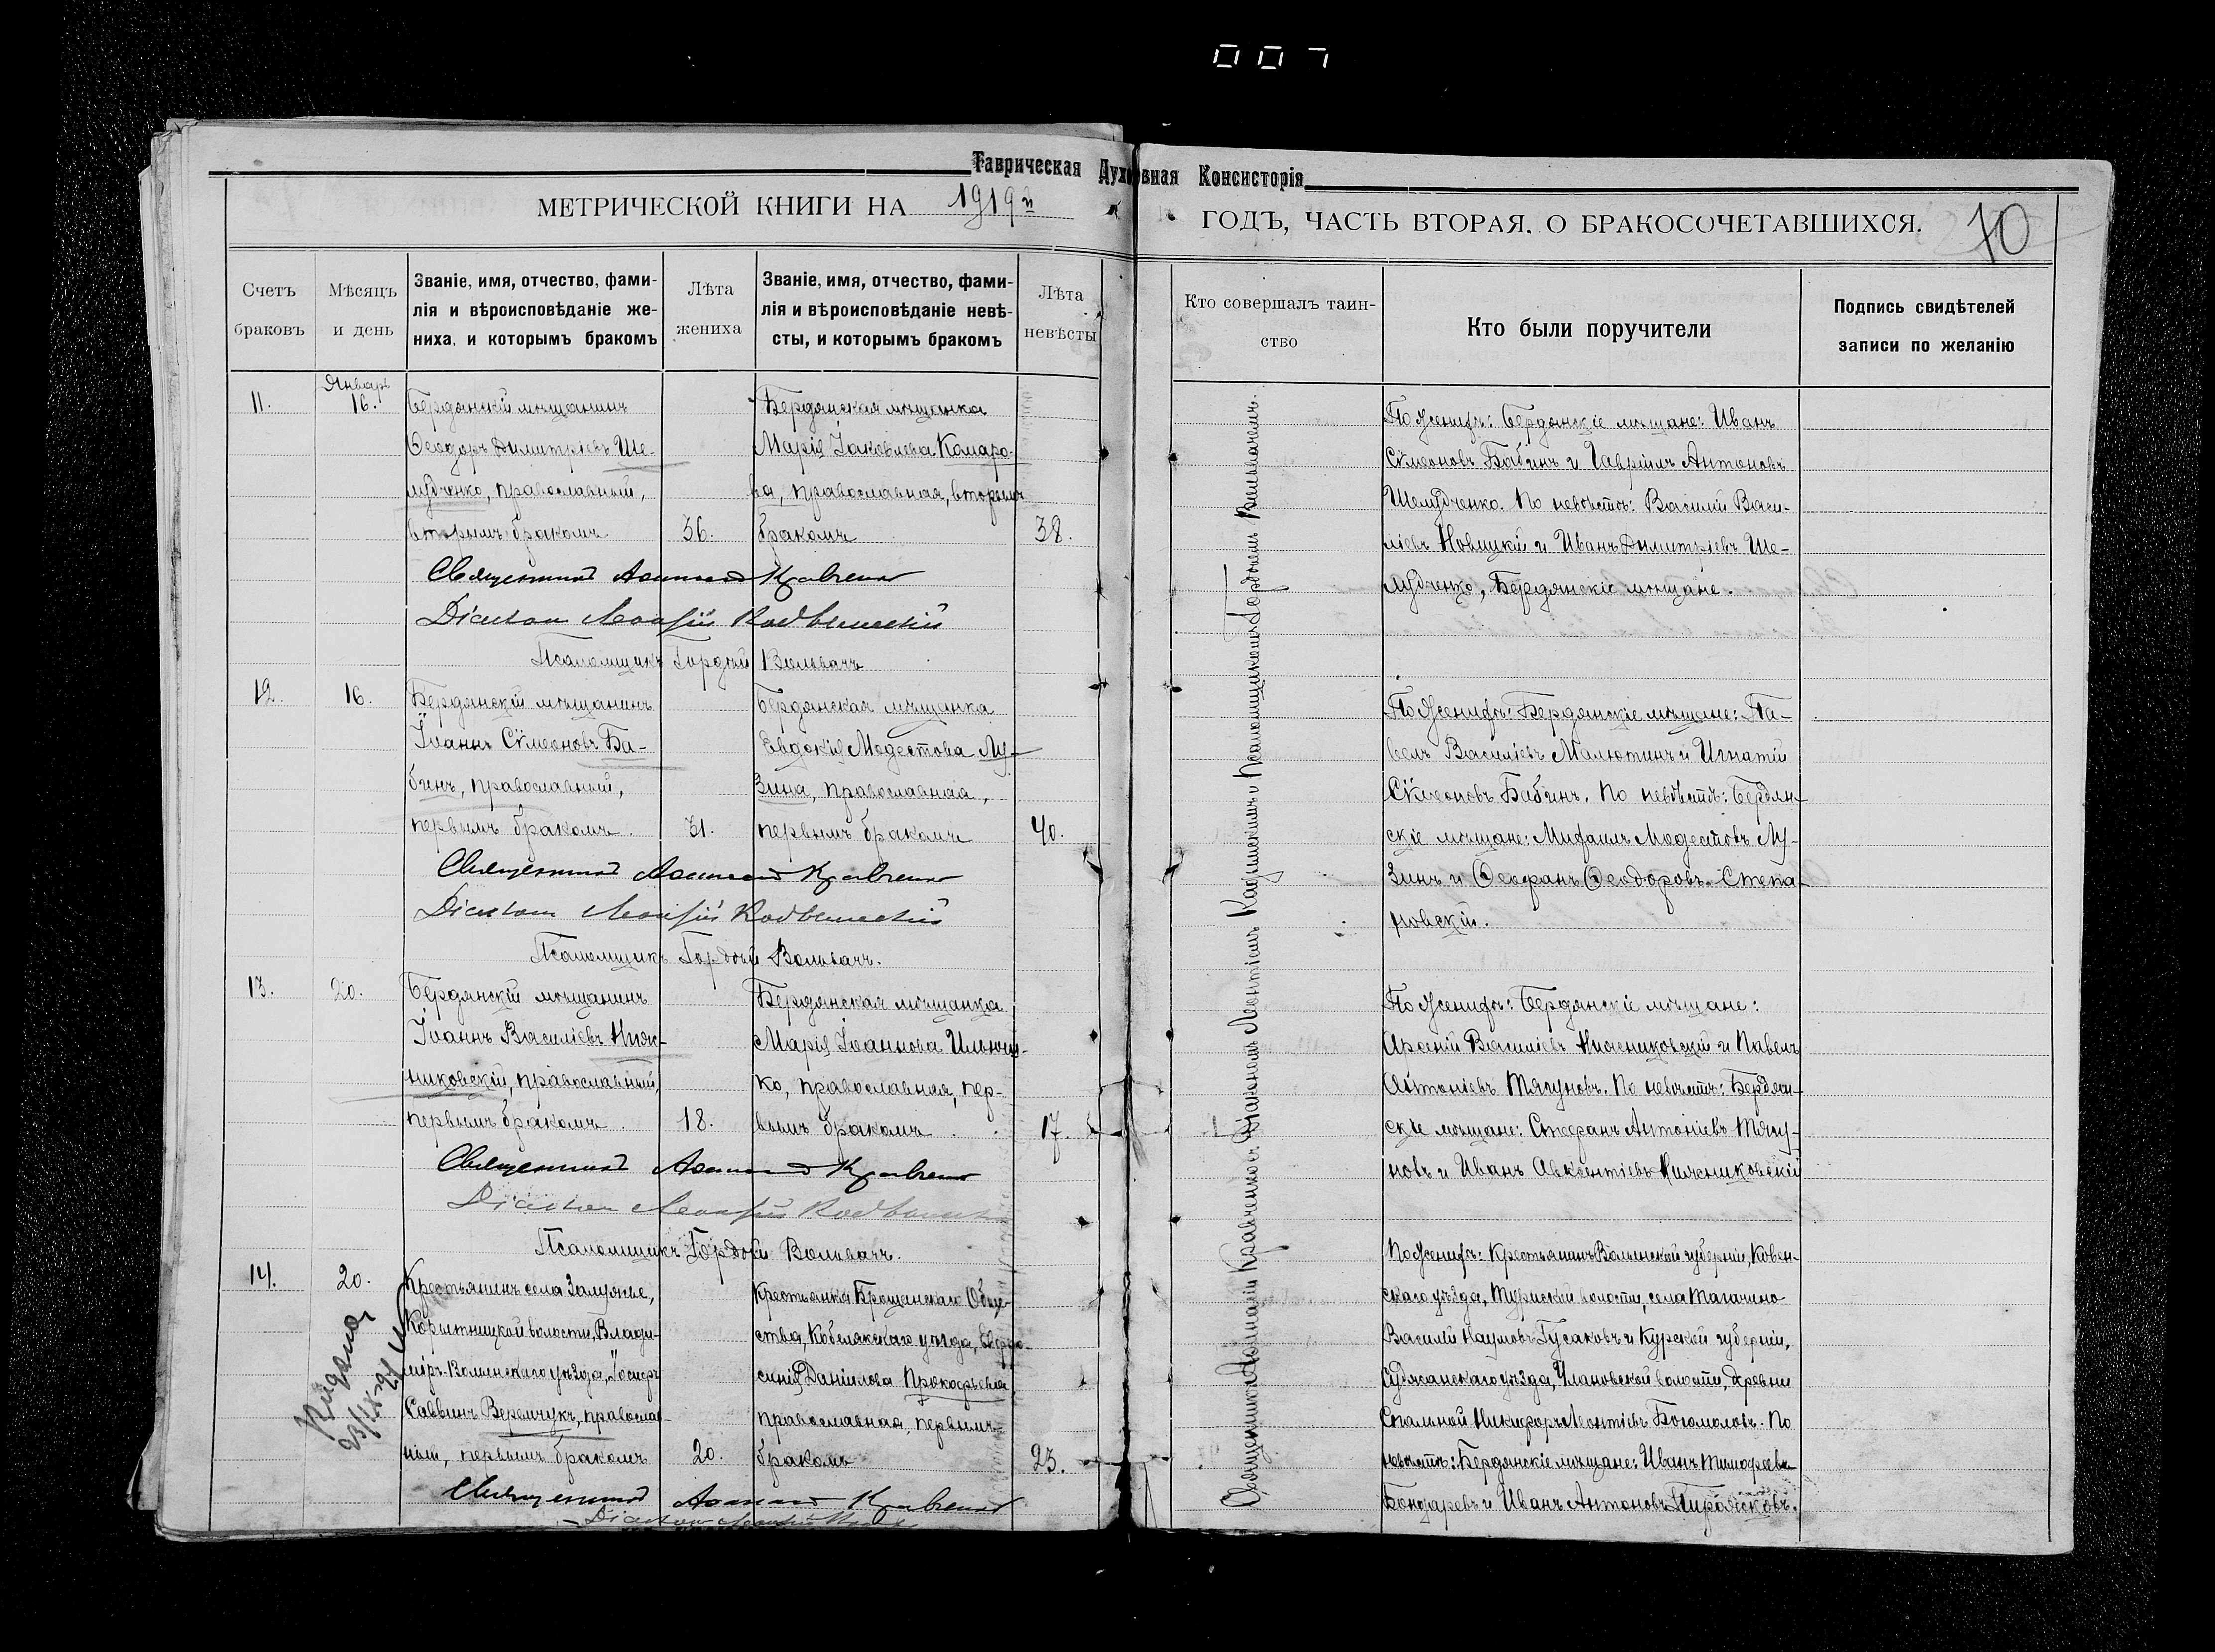 007
Таврическая Духовная Консисторія
МЕТРИЧЕСКОЙ КНИГИ НА 1919й
ГОДЪ, ЧАСТЬ ВТОРАЯ. О БРАКОСОЧЕТАВШИХСЯ. 10
Счетъ
браковъ
Мѣсяцъ
и день
Званіе, имя, отчество, фами-
лія и вѣроисповѣданіе же-
ниха, и которымъ бракомъ
Лѣта
жениха
Званіе, имя, отчество, фами-
лія и вѣроисповѣданіе невѣ-
сты, и которымъ бракомъ
Лѣта
невѣсты
Кто совершалъ таин-
ство
Кто были поручители
Подпись свидѣтелей
записи по желанію
11.
Январь
16.
Бердянскій мѣщанинъ
Ѳеодоръ Димитріевъ Ше-
лудченко, православный,
вторымъ бракомъ
36.
Бердянская мѣщанка
Марія Іаковлева Комаро-
ва, православная, вторымъ
бракомъ
38.
По женихѣ: Бердянскіе мѣщане: Иванъ
Сѵмеоновъ Бабинъ и Гавріилъ Антоновъ
Шелудченко. По невѣстѣ: Василій Васи-
ліевъ Новицкій и Иванъ Димитріевъ Ше-
лудченко, Бердянскіе мѣщане.
Священникъ Кравченко
Діаконъ
Псаломщикъ Гордѣй Вольвачъ
12.
16.
Бердянскій мѣщанинъ
Іоаннъ Сѵмеоновъ Ба-
бинъ, православный,
первымъ бракомъ.
31.
Бердянская мѣщанка
Евдокія Модестова Лу-
зина, православная,
первымъ бракомъ
40.
По женихѣ: Бердянскіе мѣщане: Па-
велъ Василіевъ Малютинъ и Игнатій
Сѵмеоновъ Бабинъ. По невѣстѣ: Бердян-
скіе мѣщане: Михаилъ Модестовъ Лу-
зинъ и Ѳеофанъ Ѳеодоровъ Степа-
новскій.
Священникъ Кравченко
Діаконъ
Псаломщикъ Гордѣй Вольвачъ.
13.
20.
Бердянскій мѣщанинъ
Іоаннъ Василіевъ Ниже-
никовскій, православный,
первымъ бракомъ.
18.
Бердянская мѣщанка
Марія Іоаннова Ильчен-
ко, православная, пер-
вымъ бракомъ.
17.
По женихѣ: Бердянскіе мѣщане:
Арсеній Василіевъ Ниженниковскій и Павелъ
Антоніевъ Тягуновъ. По невѣстѣ: Бердян-
скіе мѣщане: Стефанъ Антоніевъ Тягу-
новъ и Иванъ Авксентіевъ Ниженниковскій
Священникъ Кравченко
Діаконъ
Псаломщикъ Гордѣй Вольвачъ.
14.
20.
Крестьянинъ села Залужье,
Корытницкой волости, Влади-
міръ-Волынскаго уѣзда, Іосифъ
Саввинъ Веремчукъ, православ-
ный, первымъ бракомъ
20.
Крестьянка Обще-
ства, Кобелякскаго уѣзда, Евфро-
синія Даніилова Прокофьева
православная, первымъ
бракомъ
23.
По женихѣ: Крестьянинъ Волынской губерніи, Ковен-
скаго уѣзда, Турійской волости, села Тагачино
Василій Наумовъ Гусаковъ и Курской губерніи,
Суджанскаго уѣзда, Улановской волости, деревни
Спальной Никифоръ Леонтіевъ Богомоловъ. По
невѣстѣ: Бердянскіе мѣщане: Иванъ Тимофеевъ
Бондаревъ и Иванъ Антоновъ
Священникъ Кравченко
Діаконъ
Кравченко съ Діакономъ Леонтіемъ и Псаломщикомъ Гордѣемъ Вольвачемъ.